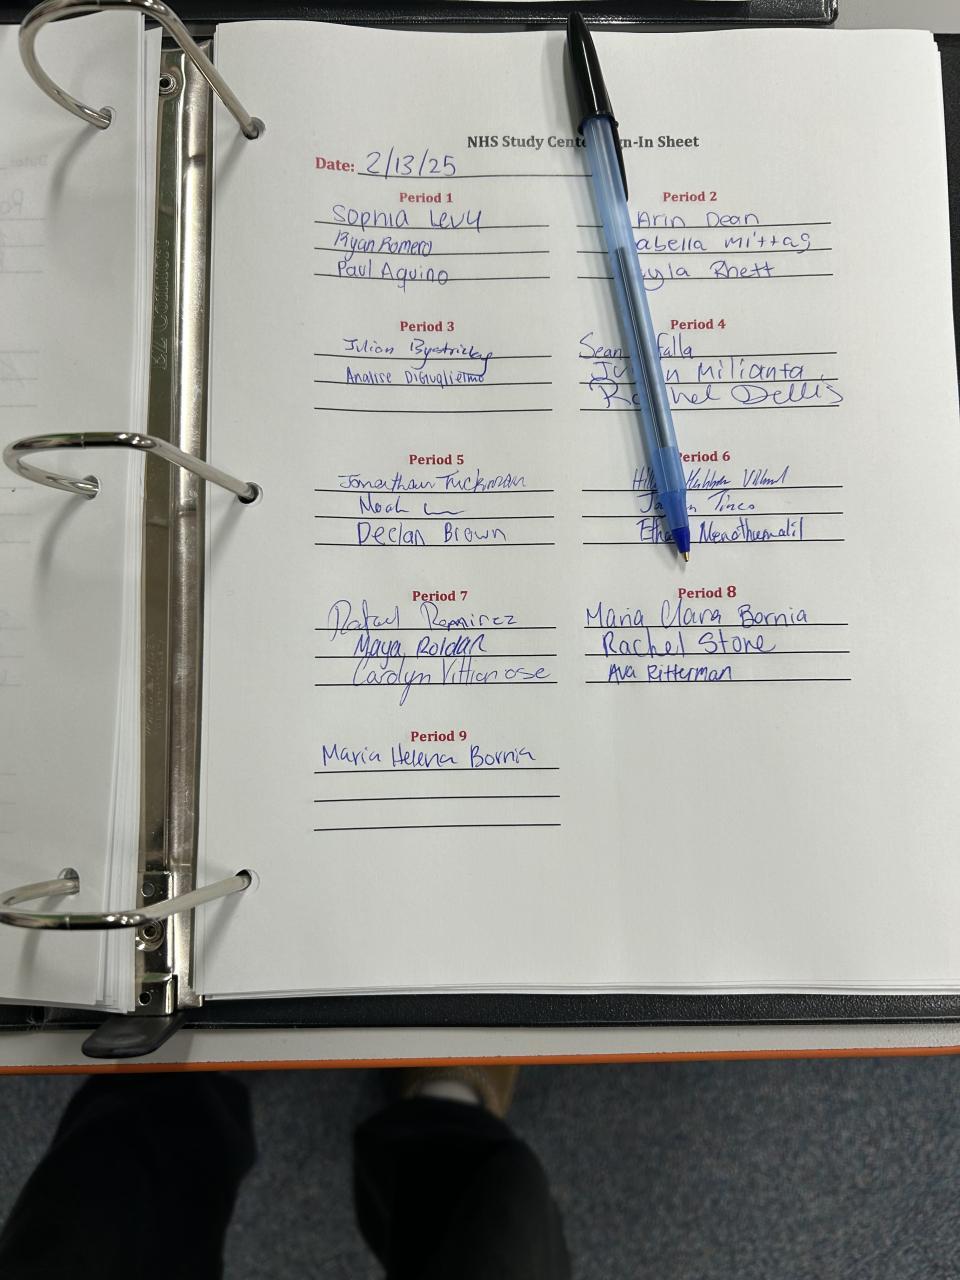 NHS Study Cente n-In Sheet
Date: 2/13/25
Period 1
Sophia Levy
Ryan Romero
Paul Aquino
Period 2
Arin Dean
abella Mittag
yla Rhett
Period 3
Julian Bystricky
Analise DiGuglielmo
Period 4
Sean falla
Ju n Milianta
Rachel Dellis
Period 5
Jonathan Tuckman
Noah
Declan Brown
Period 6
Tineo
Ethan
Period 7
Rafael Ramirez
Maya Roldan
Carolyn
Period 8
Maria Clara Bornia
Rachel Stone
Ava Ritterman
Period 9
Maria Helena Bornia